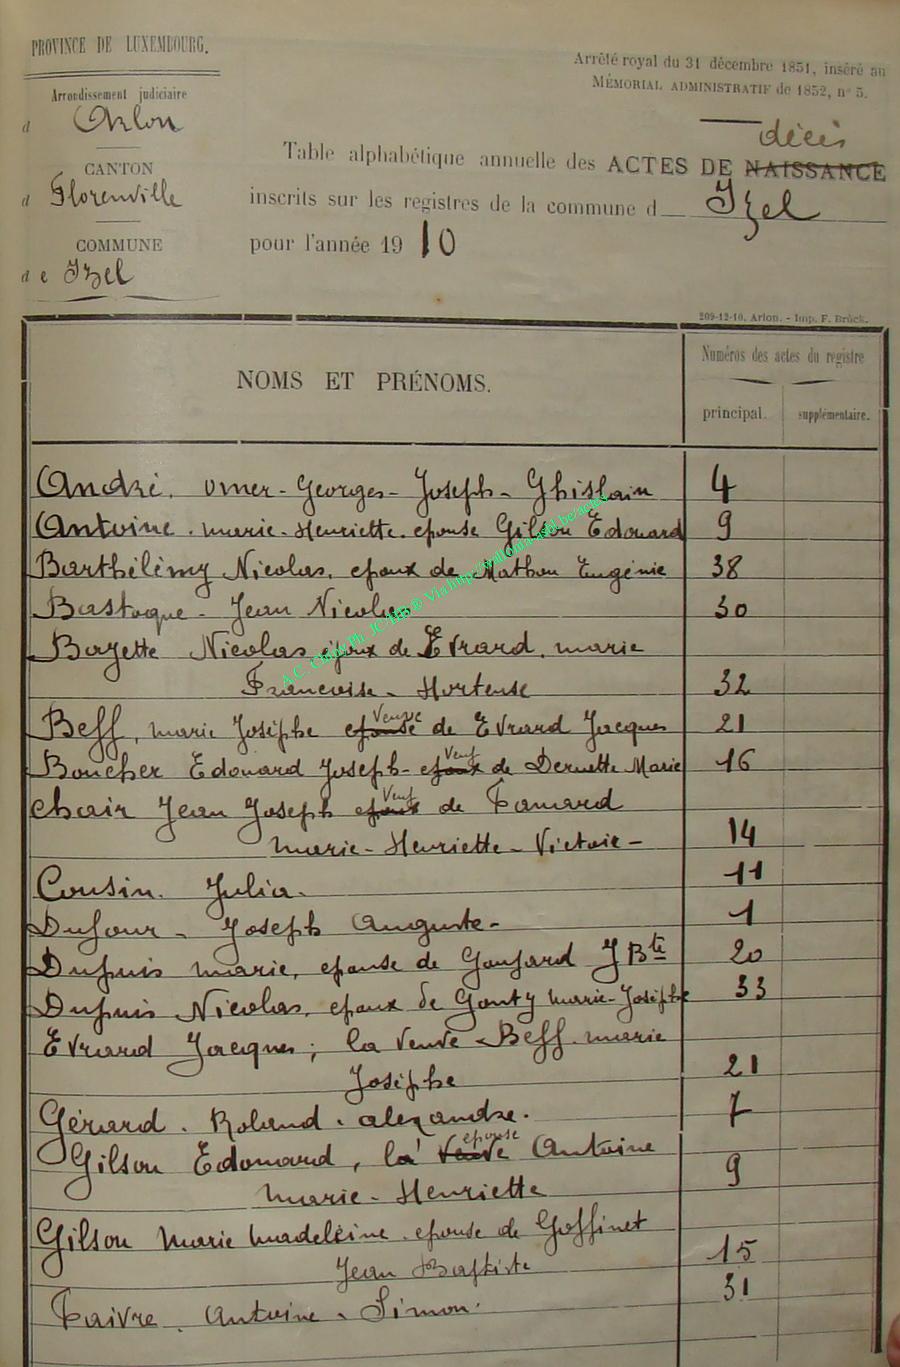 PROVINCE DE LUXEMBOURG.
Arrêté royal du 31 décembre 1851, inséré au
MÉMORIAL ADMINISTRATIF de 1852, n° 5.
Arrondissement judiciaire
d Arlon
CANTON
d Florenville
COMMUNE
de Izel
décès
Table alphabétique annuelle des ACTES DE NAISSANCE
inscrits sur les registres de la commune d Izel
pour l'année 1910
209-12-10, Arlon. - Imp. F. Brück.
NOMS ET PRÉNOMS.
Numéros des actes du registre
principal. supplémentaire.
André. Omer - Georges - Joseph - Ghislain 4
Antoine. marie - Henriette. epouse Gilson Edouard 9
Barthélémy Nicolas, epoux de Mathon Eugénie 38
Bastogne - Jean Nicolas 30
Bayette Nicolas époux de Evrard. marie
Francoise - Hortense 32
Beff, marie Josèphe epouse Veuve de Evrard Jacques 21
Boucher Edouard Joseph - epoux Veuf de Deruette Marie 16
Chair Jean Joseph epoux Veuf de
marie - Henriette - Victoie - 14
Cousin. Julia. 11
Dufour - Joseph Auguste - 1
Dupuis marie, epouse de Goujard J Bte 20
Dupuis Nicolas, epoux de Gouty marie - Josèphe 33
Evrard Jacques; la Veuve Beff. marie
Josèphe 21
Gérard. Roland. alexandre. 7
Gilson Edouard, la Veuve epouse Antoine
marie - Henriette 9
Gilson Marie Madeleine. epouse de Goffinet
Jean Baptiste 15
Antoine - Simon. 31